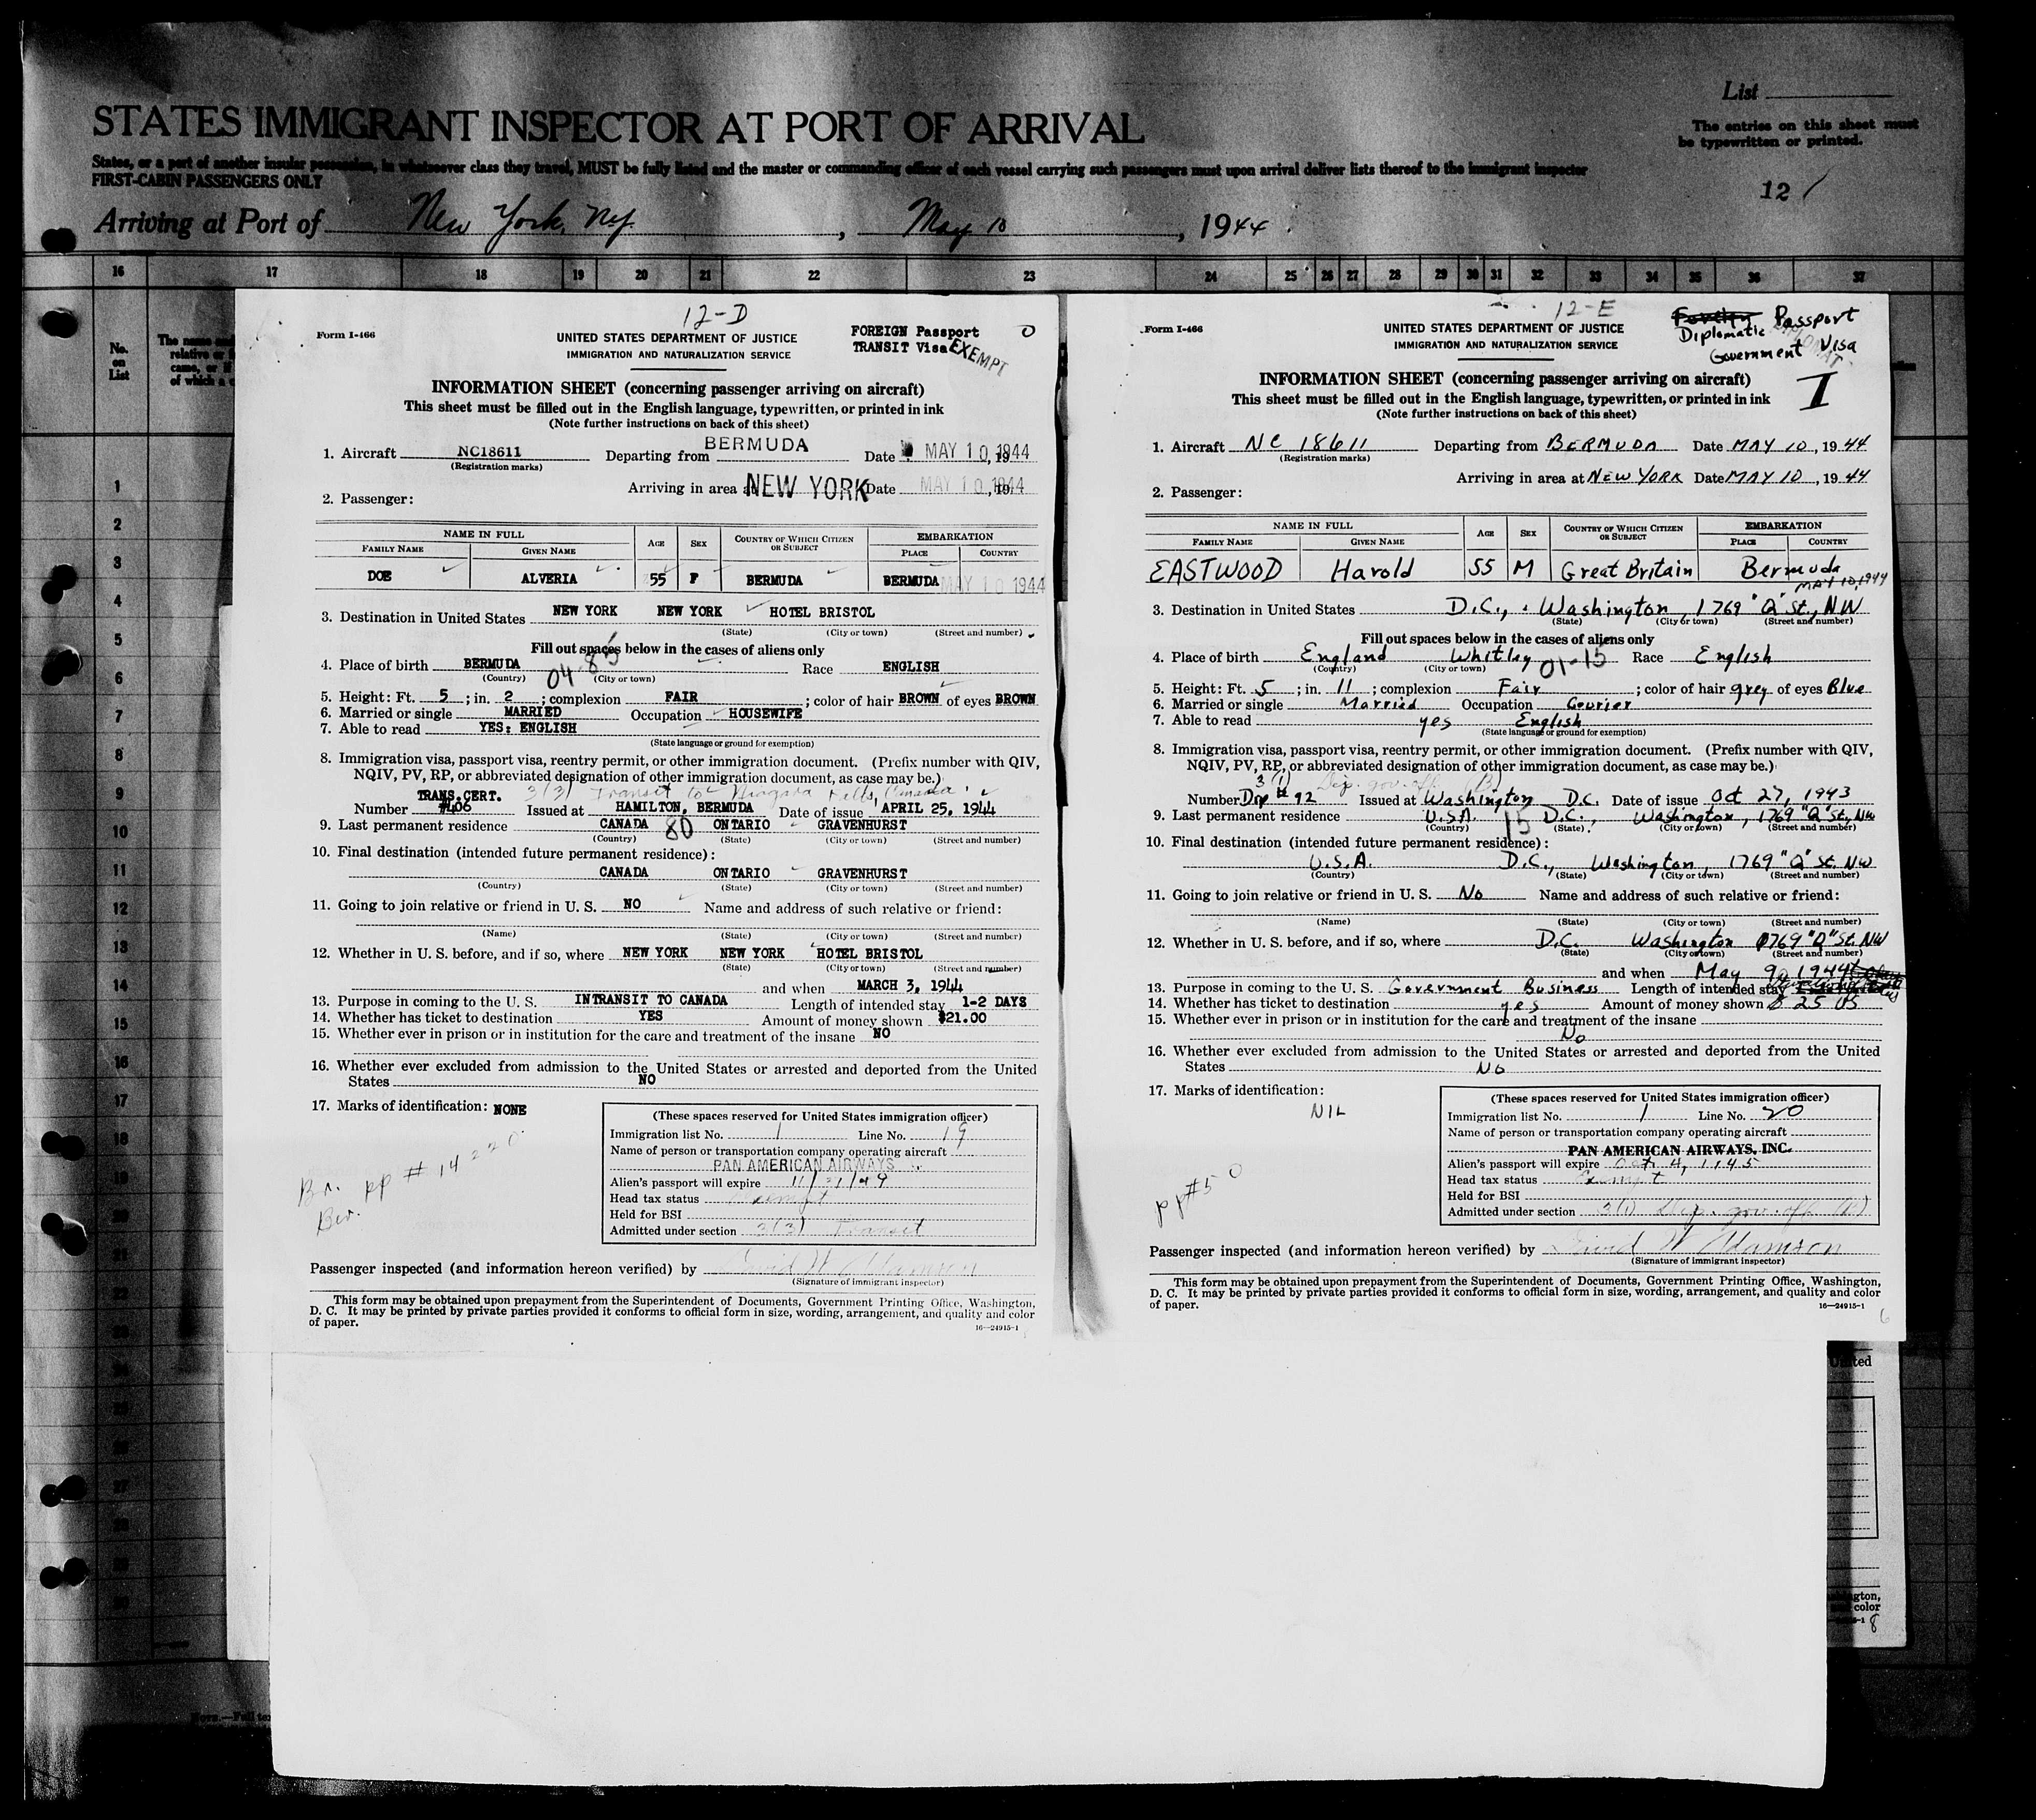 List
STATES IMMIGRANT INSPECTOR AT PORT OF ARRIVAL
The entries on this sheet must
be typewritten or printed.
States, or a port of another insular possession, in whatsoever class they travel, MUST be fully listed and the master or commanding officer of each vessel carrying such passengers must upon arrival deliver lists thereof to the immigrant inspector
FIRST-CABIN PASSENGERS ONLY
12
Arriving at Port of New York, NY, May 10, 1944
16 17 18 19 20 21 22 23 24 25 26 27 28 29 30 31 32 33 34 35 36 37
No.
on
List
1
2
3
4
5
6
7
8
9
10
11
12
13
14
15
16
17
18
12-D
Form I-466
UNITED STATES DEPARTMENT OF JUSTICE
IMMIGRATION AND NATURALIZATION SERVICE
FOREIGN Passport
TRANSIT Visa
EXEMPT
INFORMATION SHEET (concerning passenger arriving on aircraft)
This sheet must be filled out in the English language, typewritten, or printed in ink
(Note further instructions on back of this sheet)
1. Aircraft NC18611 Departing from BERMUDA Date MAY 10 1944, 19
(Registration marks)
Arriving in area at NEW YORK Date MAY 10 1944, 19
2. Passenger:
NAME IN FULL AGE SEX COUNTRY OF WHICH CITIZEN OR SUBJECT EMBARKATION
FAMILY NAME GIVEN NAME PLACE COUNTRY
DOE ALVERIA 55 F BERMUDA BERMUDA MAY 10 1944
3. Destination in United States NEW YORK NEW YORK HOTEL BRISTOL
(State) (City or town) (Street and number)
Fill out spaces below in the cases of aliens only
4. Place of birth BERMUDA 04-85 Race ENGLISH
(Country) (City or town)
5. Height: Ft. 5; in. 2; complexion FAIR; color of hair BROWN of eyes BROWN
6. Married or single MARRIED Occupation HOUSEWIFE
7. Able to read YES: ENGLISH
(State language or ground for exemption)
8. Immigration visa, passport visa, reentry permit, or other immigration document. (Prefix number with QIV,
NQIV, PV, RP, or abbreviated designation of other immigration document, as case may be.)
TRANS.CERT. 3(3) Transit to Niagara Falls, Canada.
Number #406 Issued at HAMILTON, BERMUDA Date of issue APRIL 25, 1944
9. Last permanent residence CANADA 80 ONTARIO GRAVENHURST
(Country) (State) (City or town) (Street and number)
10. Final destination (intended future permanent residence):
CANADA ONTARIO GRAVENHURST
(Country) (State) (City or town) (Street and number)
11. Going to join relative or friend in U. S. NO Name and address of such relative or friend:
(Name) (State) (City or town) (Street and number)
12. Whether in U. S. before, and if so, where NEW YORK NEW YORK HOTEL BRISTOL
(State) (City or town) (Street and number)
and when MARCH 3, 1944
13. Purpose in coming to the U. S. INTRANSIT TO CANADA Length of intended stay 1-2 DAYS
14. Whether has ticket to destination YES Amount of money shown $21.00
15. Whether ever in prison or in institution for the care and treatment of the insane NO
16. Whether ever excluded from admission to the United States or arrested and deported from the United
States NO
17. Marks of identification: NONE
(These spaces reserved for United States immigration officer)
Immigration list No. 1 Line No. 19
Name of person or transportation company operating aircraft
PAN AMERICAN AIRWAYS
Alien's passport will expire 11/21/49
Head tax status Exempt
Held for BSI
Admitted under section 3(3) Transit
Br. pp # 14220
Ber.
Passenger inspected (and information hereon verified) by David W Adamson
(Signature of immigrant inspector)
This form may be obtained upon prepayment from the Superintendent of Documents, Government Printing Office, Washington,
D. C. It may be printed by private parties provided it conforms to official form in size, wording, arrangement, and quality and color
of paper.
16—24915-1
12-E
Form I-466
UNITED STATES DEPARTMENT OF JUSTICE
IMMIGRATION AND NATURALIZATION SERVICE
Foreign Passport
Diplomatic
Government Visa
I
INFORMATION SHEET (concerning passenger arriving on aircraft)
This sheet must be filled out in the English language, typewritten, or printed in ink
(Note further instructions on back of this sheet)
1. Aircraft NC 18611 Departing from BERMUDA Date MAY 10, 1944
(Registration marks)
Arriving in area at NEW YORK Date MAY 10, 1944
2. Passenger:
NAME IN FULL AGE SEX COUNTRY OF WHICH CITIZEN OR SUBJECT EMBARKATION
FAMILY NAME GIVEN NAME PLACE COUNTRY
EASTWOOD Harold 55 M Great Britain Bermuda
MAY 10, 1944
3. Destination in United States D.C., Washington, 1769 "Q" St., NW
(State) (City or town) (Street and number)
Fill out spaces below in the cases of aliens only
4. Place of birth England Whitley 01-15 Race English
(Country) (City or town)
5. Height: Ft. 5; in. 11; complexion Fair; color of hair grey of eyes Blue
6. Married or single Married Occupation Courier
7. Able to read yes English
(State language or ground for exemption)
8. Immigration visa, passport visa, reentry permit, or other immigration document. (Prefix number with QIV,
NQIV, PV, RP, or abbreviated designation of other immigration document, as case may be.)
3(1) Dip. gov. off. (B)
Number Dip # 92 Issued at Washington D.C. Date of issue Oct 27, 1943
9. Last permanent residence U.S.A. 15 D.C., Washington, 1769 "Q" St., NW
(Country) (State) (City or town) (Street and number)
10. Final destination (intended future permanent residence):
U.S.A. D.C., Washington, 1769 "Q" St. NW
(Country) (State) (City or town) (Street and number)
11. Going to join relative or friend in U. S. No Name and address of such relative or friend:
(Name) (State) (City or town) (Street and number)
12. Whether in U. S. before, and if so, where D.C. Washington 1769 "Q" St. NW
(State) (City or town) (Street and number)
and when May 9, 1944
13. Purpose in coming to the U. S. Government Business Length of intended stay
14. Whether has ticket to destination yes Amount of money shown $ 25 US
15. Whether ever in prison or in institution for the care and treatment of the insane
No
16. Whether ever excluded from admission to the United States or arrested and deported from the United
States No
17. Marks of identification:
NIL
(These spaces reserved for United States immigration officer)
Immigration list No. 1 Line No. 20
Name of person or transportation company operating aircraft
PAN AMERICAN AIRWAYS, INC.
Alien's passport will expire Oct 4, 1945
Head tax status Exempt
Held for BSI
Admitted under section 3(1) Dip. gov. off. (B)
pp#50
Passenger inspected (and information hereon verified) by David W Adamson
(Signature of immigrant inspector)
This form may be obtained upon prepayment from the Superintendent of Documents, Government Printing Office, Washington,
D. C. It may be printed by private parties provided it conforms to official form in size, wording, arrangement, and quality and color
of paper.
16—24915-1
6
8